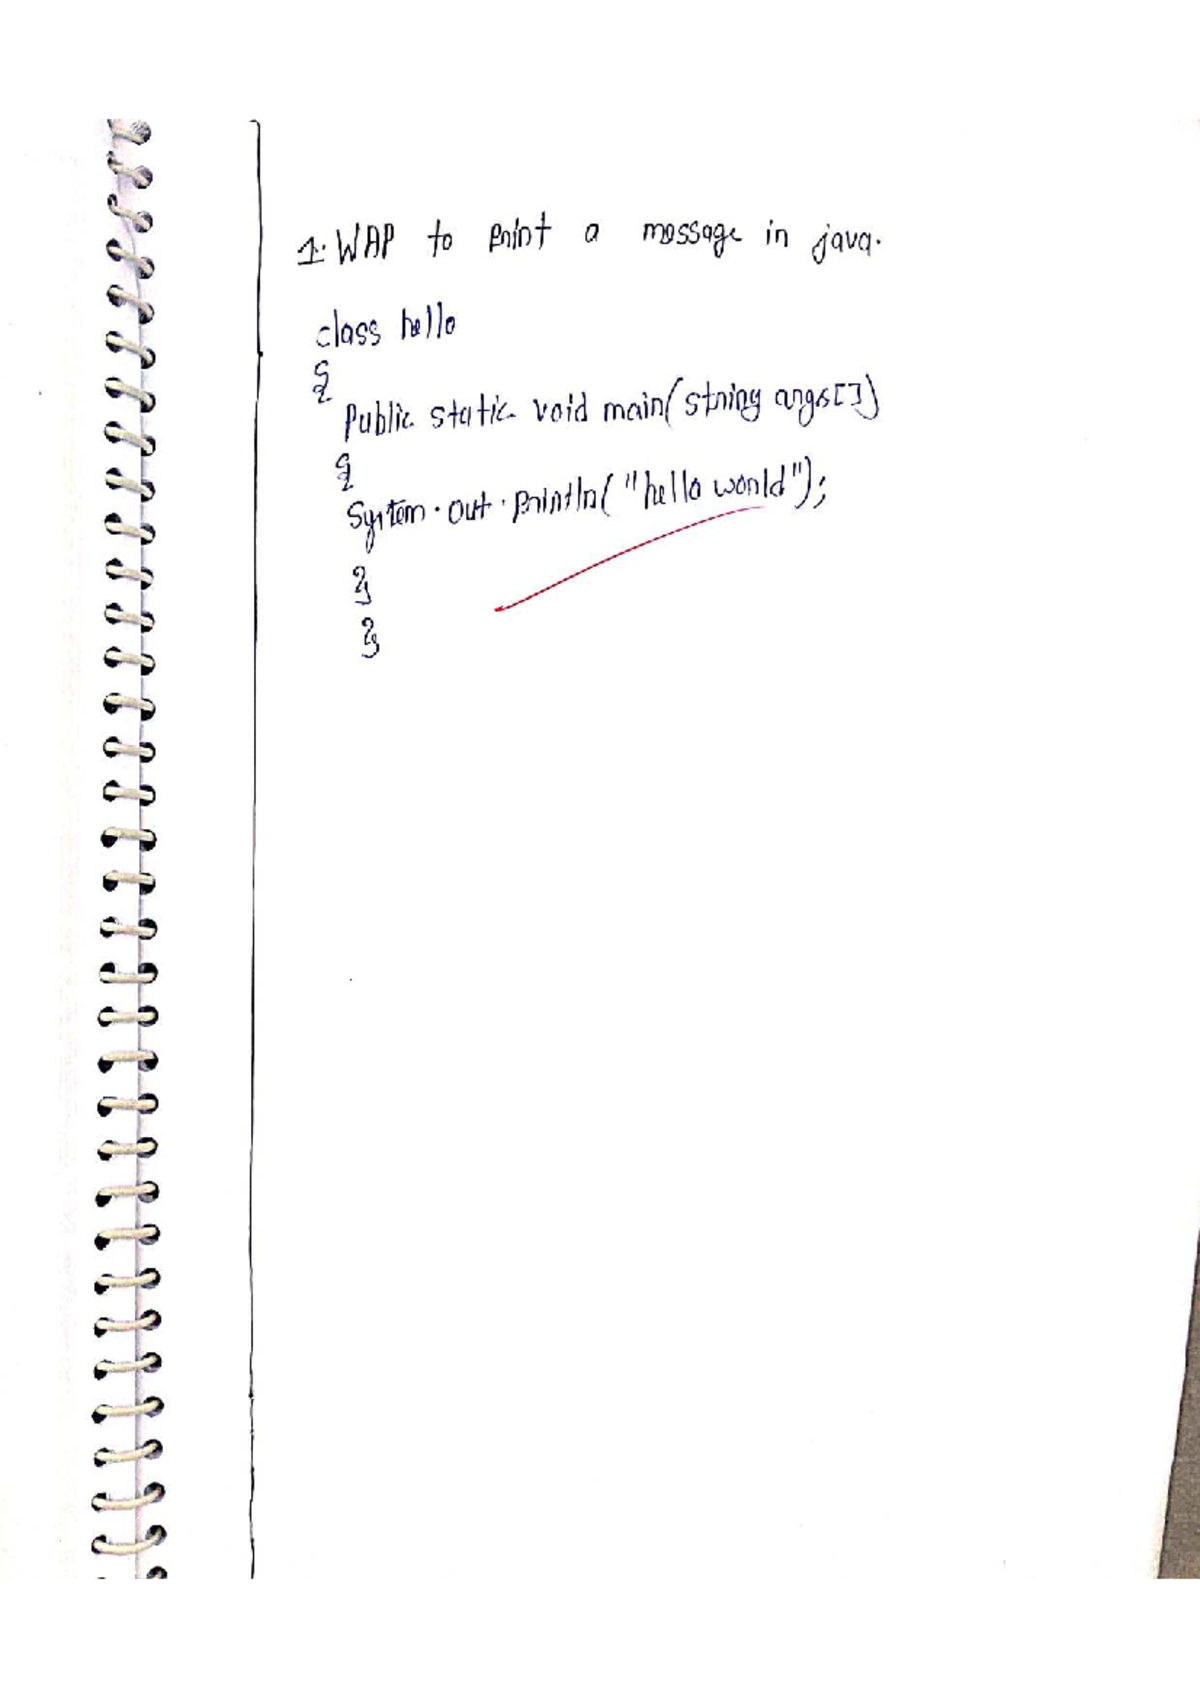 1. WAP to print a message in java.
class hello
{
public static void main(string args[])
{
System.out.println("hello world");
}
}